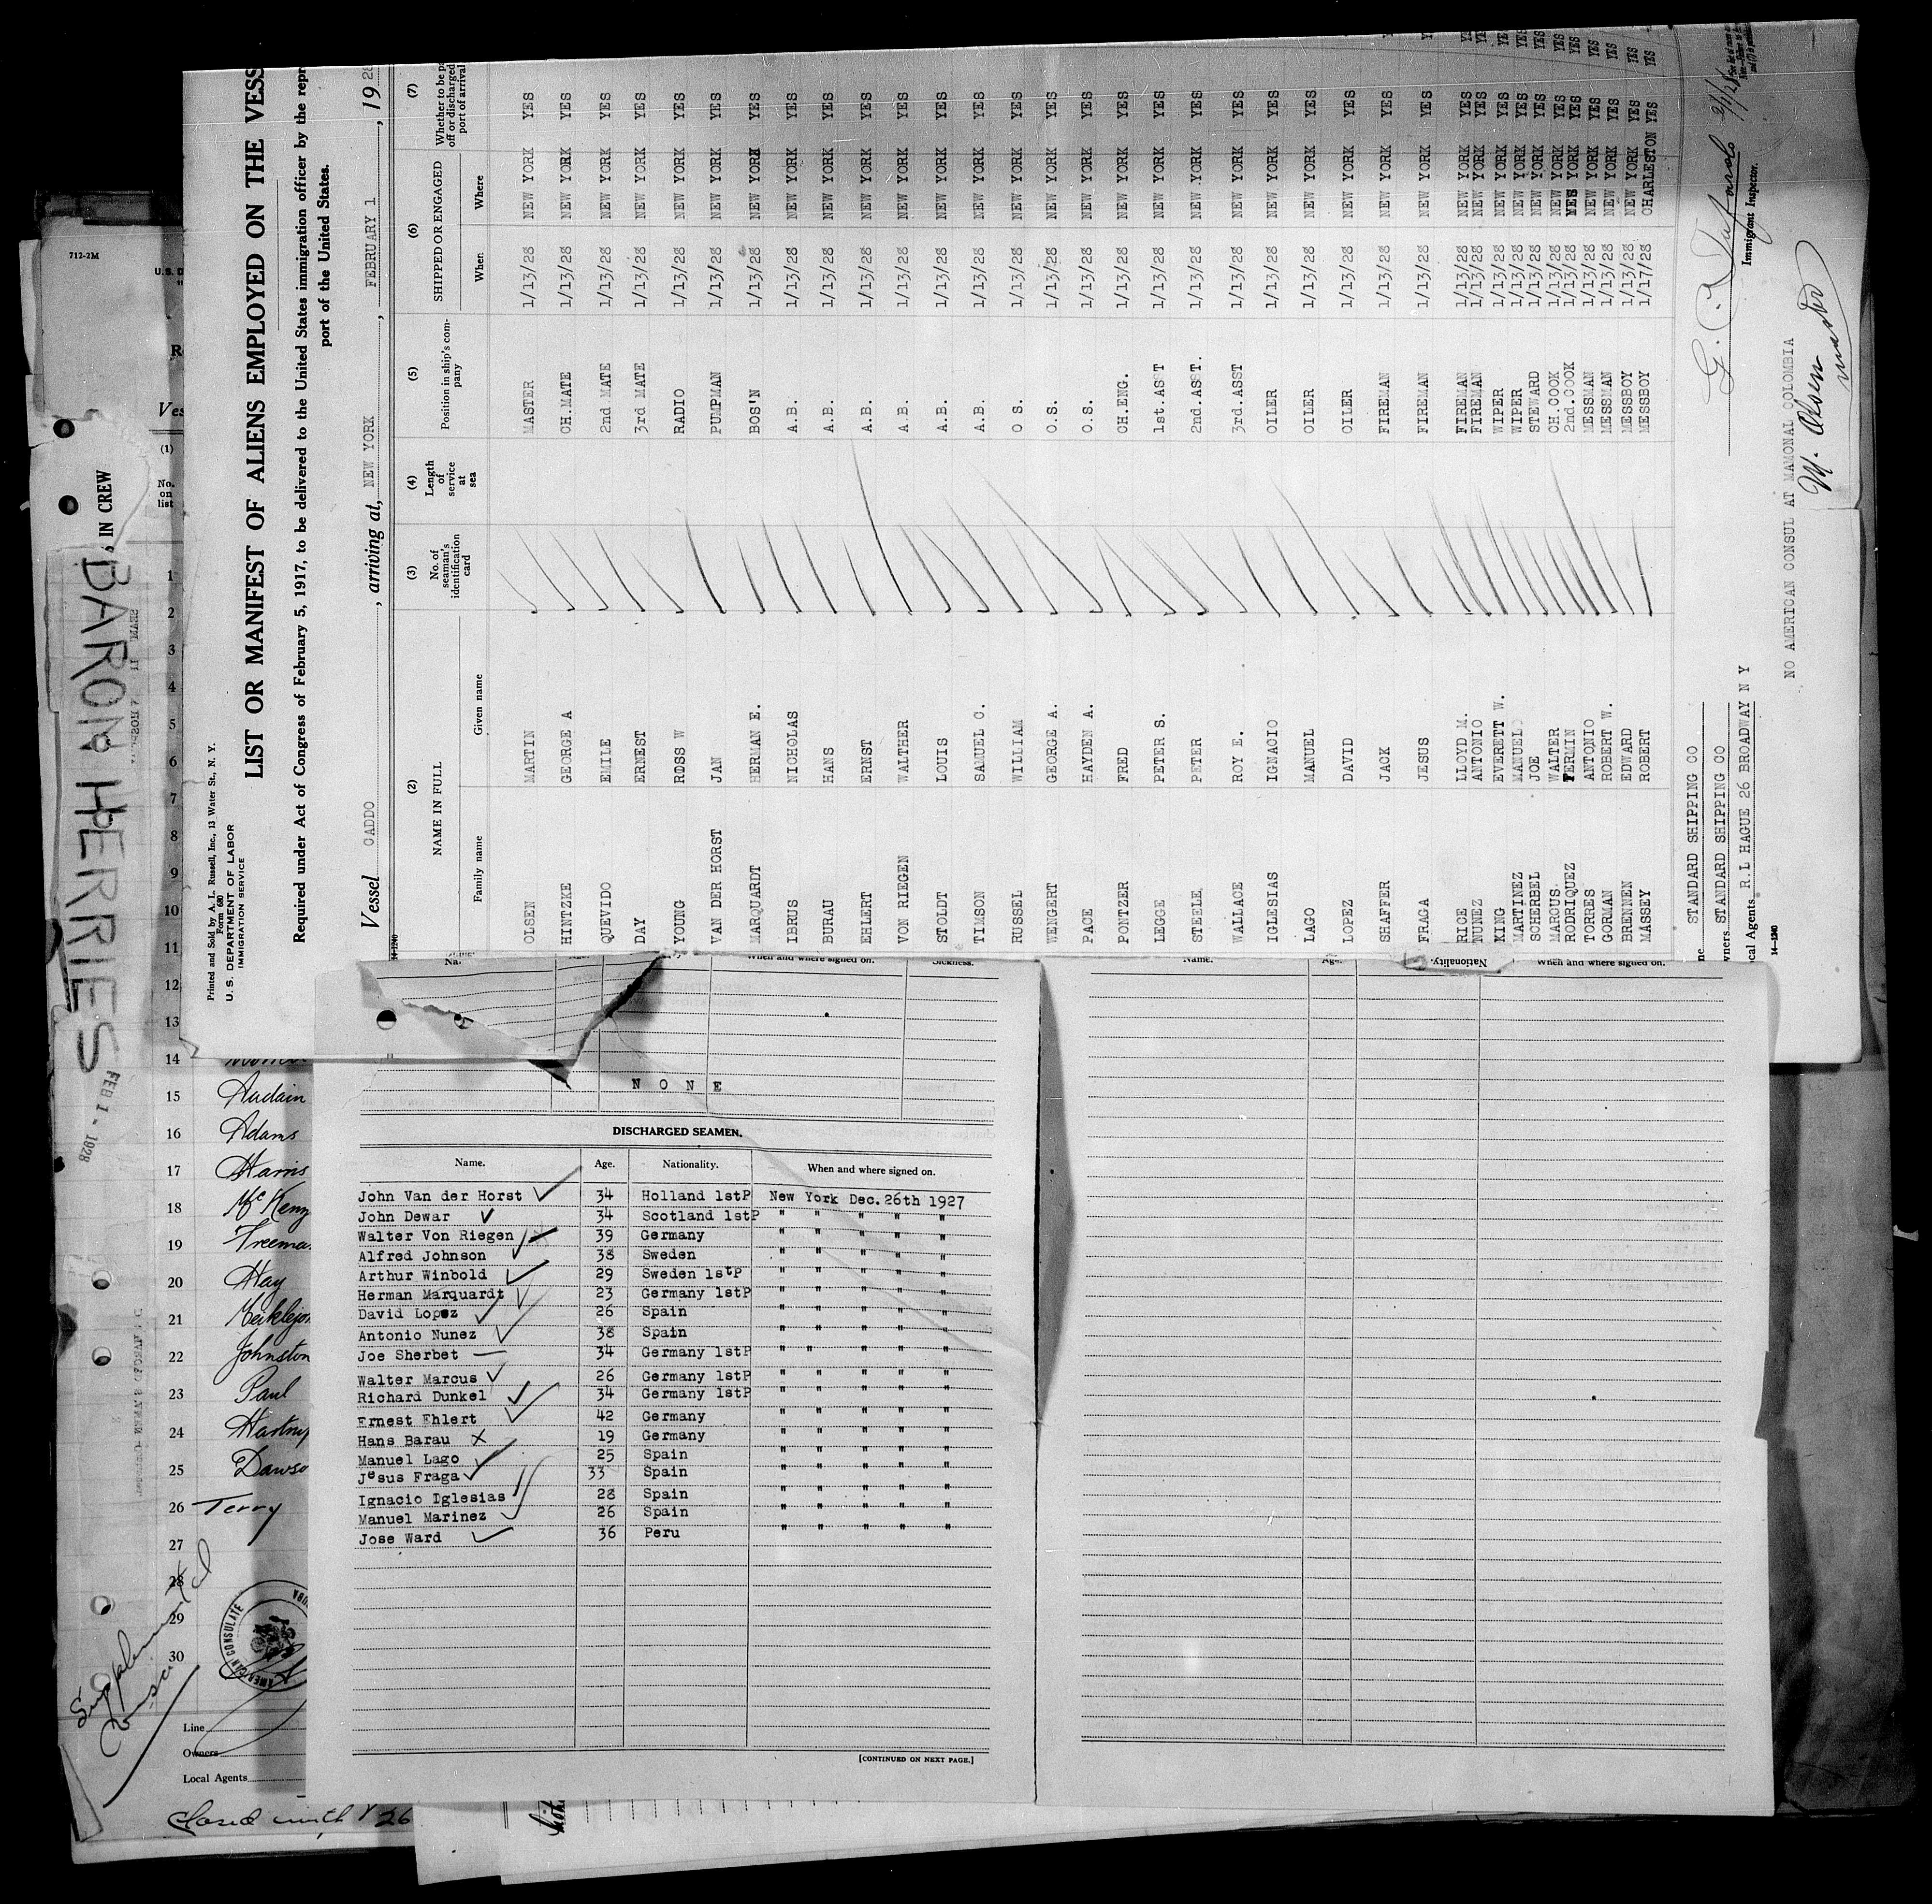 712-2M
"BARON HERRIES" IN CREW
FEB 1 - 1928
(1)
No. on list
1
2
3
4
5
6
7
8
9
10
11
12
13
14
15 Audain
16 Adams
17 Harris
18
19
20 Hay
21
22 Johnston
23 Paul
24
25
26 Terry
27
28
29
30
AMERICAN CONSULATE
Line
Owners
Local Agents
Closed with 26
Printed and Sold by A. L. Russell, Inc., 13 Water St., N. Y.
Form 680
U. S. DEPARTMENT OF LABOR
IMMIGRATION SERVICE
LIST OR MANIFEST OF ALIENS EMPLOYED ON THE VESS
Required under Act of Congress of February 5, 1917, to be delivered to the United States immigration officer by the repr
port of the United States.
Vessel CADDO, arriving at, NEW YORK, FEBRUARY 1, 1928
14-1240
(2) (3) (4) (5) (6) (7)
NAME IN FULL
Family name Given name
No. of seaman's identification card
Length of service at sea
Position in ship's company
SHIPPED OR ENGAGED
When Where
Whether to be pa
off or discharged
port of arrival
OLSEN MARTIN MASTER 1/13/28 NEW YORK YES
HINTZKE GEORGE A CH.MATE 1/13/28 NEW YORK YES
QUEVIDO EMILE 2nd MATE 1/13/28 NEW YORK YES
DAY ERNEST 3rd MATE 1/13/28 NEW YORK YES
YOUNG ROSS W RADIO 1/13/28 NEW YORK YES
VAN DER HORST JAN PUMPMAN 1/13/28 NEW YORK YES
MARQUARDT HERMAN E. BOS'N 1/13/28 NEW YORK YES
IBRUS NICHOLAS A.B. 1/13/28 NEW YORK YES
BURAU HANS A.B. 1/13/28 NEW YORK YES
EHLERT ERNST A.B. 1/13/28 NEW YORK YES
VON RIEGEN WALTHER A.B. 1/13/28 NEW YORK YES
STOLDT LOUIS A.B. 1/13/28 NEW YORK YES
TIMSON SAMUEL C. A.B. 1/13/28 NEW YORK YES
RUSSEL WILLIAM O S. 1/13/28 NEW YORK YES
WENGERT GEORGE A. O.S. 1/13/28 NEW YORK YES
PACE HAYDEN A. O.S. 1/13/28 NEW YORK YES
PONTZER FRED CH.ENG. 1/13/28 NEW YORK YES
LEGGE PETER S. 1st.AS'T 1/13/28 NEW YORK YES
STEELE PETER 2nd.AS'T. 1/13/28 NEW YORK YES
WALLACE ROY E. 3rd.ASST 1/13/28 NEW YORK YES
IGLESIAS IGNACIO OILER 1/13/28 NEW YORK YES
LAGO MANUEL OILER 1/13/28 NEW YORK YES
LOPEZ DAVID OILER 1/13/28 NEW YORK YES
SHAFFER JACK FIREMAN 1/13/28 NEW YORK YES
FRAGA JESUS FIREMAN 1/13/28 NEW YORK YES
RICE LLOYD M. FIREMAN 1/13/28 NEW YORK YES
NUNEZ ANTONIO FIREMAN 1/13/28 NEW YORK YES
KING EVERETT W. WIPER 1/13/28 NEW YORK YES
MARTINEZ MANUEL WIPER 1/13/28 NEW YORK YES
SCHERBEL JOE STEWARD 1/13/28 NEW YORK YES
MARCUS WALTER CH.COOK 1/13/28 NEW YORK YES
RODRIQUEZ FERMIN 2nd.COOK 1/13/28 NEW YORK YES
TORRES ANTONIO MESSMAN 1/13/28 NEW YORK YES
GORMAN ROBERT W. MESSMAN 1/13/28 NEW YORK YES
BRENNEN EDWARD MESSBOY 1/13/28 NEW YORK YES
MASSEY ROBERT MESSBOY 1/17/28 CHARLESTON YES
STANDARD SHIPPING CO
wners STANDARD SHIPPING CO
cal Agents R.L HAGUE 26 BROADWAY N Y
Immigrant Inspector.
14-1240
NO AMERICAN CONSUL AT MAMONAL COLOMBIA
M. Olsen
master
When and where signed on. Sickness.
NONE
DISCHARGED SEAMEN.
Name. Age. Nationality. When and where signed on.
John Van der Horst 34 Holland 1stP New York Dec. 26th 1927
John Dewar 34 Scotland 1stP " " " " "
Walter Von Riegen 39 Germany " " " " "
Alfred Johnson 38 Sweden " " " " "
Arthur Winbold 29 Sweden 1stP " " " " "
Herman Marquardt 23 Germany 1stP " " " " "
David Lopez 26 Spain " " " " "
Antonio Nunez 38 Spain " " " " "
Joe Sherbet 34 Germany 1stP " " " " "
Walter Marcus 26 Germany 1stP " " " " "
Richard Dunkel 34 Germany 1stP " " " " "
Ernest Ehlert 42 Germany " " " " "
Hans Barau 19 Germany " " " " "
Manuel Lago 25 Spain " " " " "
Jesus Fraga 33 Spain " " " " "
Ignacio Iglesias 28 Spain " " " " "
Manuel Marinez 26 Spain " " " " "
Jose Ward 36 Peru " " " " "
[CONTINUED ON NEXT PAGE.]
Name. Age. Nationality. When and where signed on.